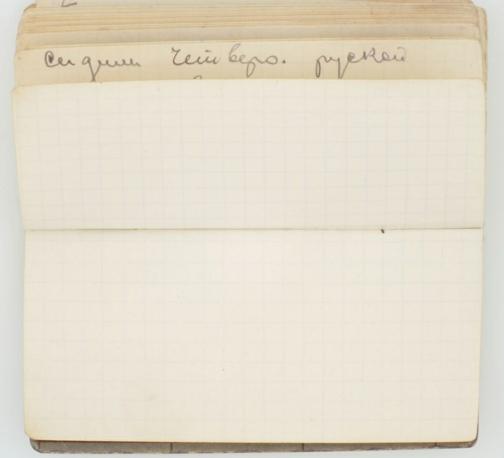 сидим четверо. руской